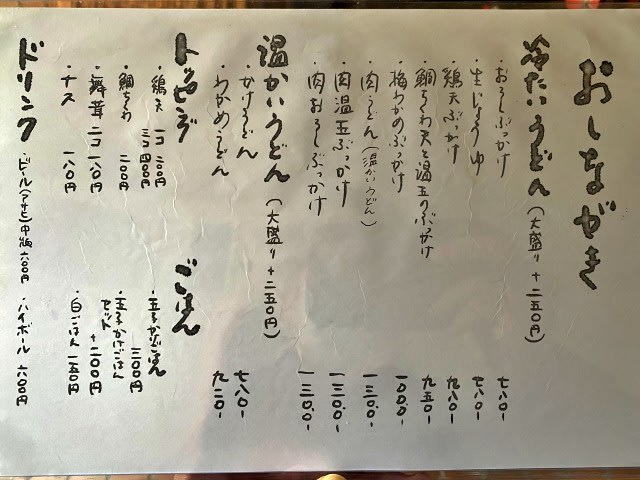 おしながき
冷たいうどん（大盛り＋二五〇円）
・おろしぶっかけ 七八〇-
・生じょうゆ 七八〇-
・鶏天ぶっかけ 九八〇-
・鯛ちくわ天と温玉のぶっかけ 九五〇-
・梅わかめぶっかけ 一〇〇〇-
・肉うどん（温かいうどん） 一三〇〇-
・肉温玉ぶっかけ 一三〇〇-
・肉おろしぶっかけ 一三〇〇-
温かいうどん（大盛り＋二五〇円）
・かけうどん 七八〇-
・わかめうどん 九二〇-
トッピング
・鶏天 一コ 二〇〇円
三コ 四〇〇円
・鯛ちくわ 二〇〇円
・舞茸 二コ 一八〇円
・ナス 一八〇円
ごはん
・玉子かけごはん
三〇〇円
・玉子かけごはん
セット ＋二〇〇円
・白ごはん 一五〇円
ドリンク ・ビール（アサヒ）中瓶 六〇〇円 ・ハイボール 六〇〇円